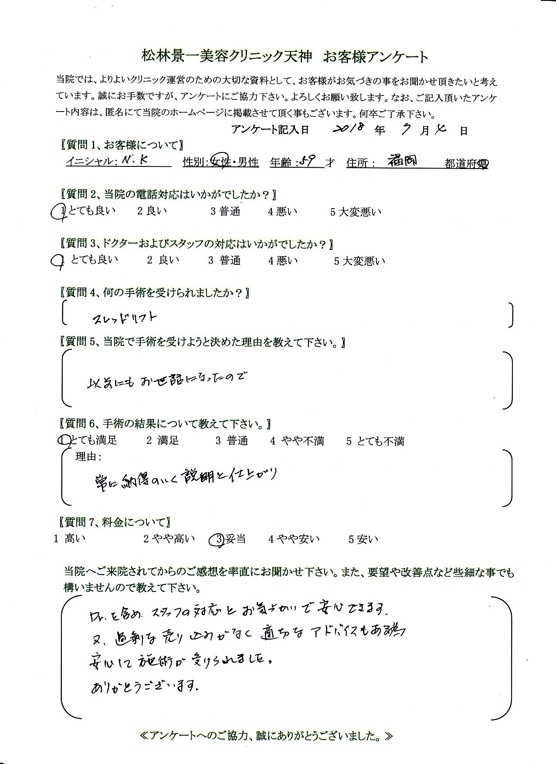 松林景一美容クリニック天神　お客様アンケート
当院では、よりよいクリニック運営のための大切な資料として、お客様がお気づきの事をお聞かせ頂きたいと考え
ています。誠にお手数ですが、アンケートにご協力下さい。よろしくお願い致します。なお、ご記入頂いたアンケ
ート内容は、匿名にて当院のホームページに掲載させて頂く事もございます。何卒ご了承下さい。
アンケート記入日　2018 年 月 日
【質問1、お客様について】
イニシャル: N.K　性別:女性・男性　年齢:59才　住所:福岡　都道府県
【質問2、当院の電話対応はいかがでしたか？】
1とても良い　2 良い　3 普通　4 悪い　5 大変悪い
【質問3、ドクターおよびスタッフの対応はいかがでしたか？】
1とても良い　2 良い　3 普通　4 悪い　5 大変悪い
【質問4、何の手術を受けられましたか？】
スレッドリフト
【質問5、当院で手術を受けようと決めた理由を教えて下さい。】
以前にもお世話になったので
【質問6、手術の結果について教えて下さい。】
1とても満足　2 満足　3 普通　4 やや不満　5 とても不満
理由:
常に納得のいく説明と仕上がり
【質問7、料金について】
1 高い　2 やや高い　3 妥当　4 やや安い　5 安い
当院へご来院されてからのご感想を率直にお聞かせ下さい。また、要望や改善点など些細な事でも
構いませんので教えて下さい。
Dr.を含め、スタッフの対応とお気づかいで安心できます。
又、過剰な売り込みがなく適切なアドバイスもある為
安心して施術が受けられました。
ありがとうございます。
≪アンケートへのご協力、誠にありがとうございました。≫